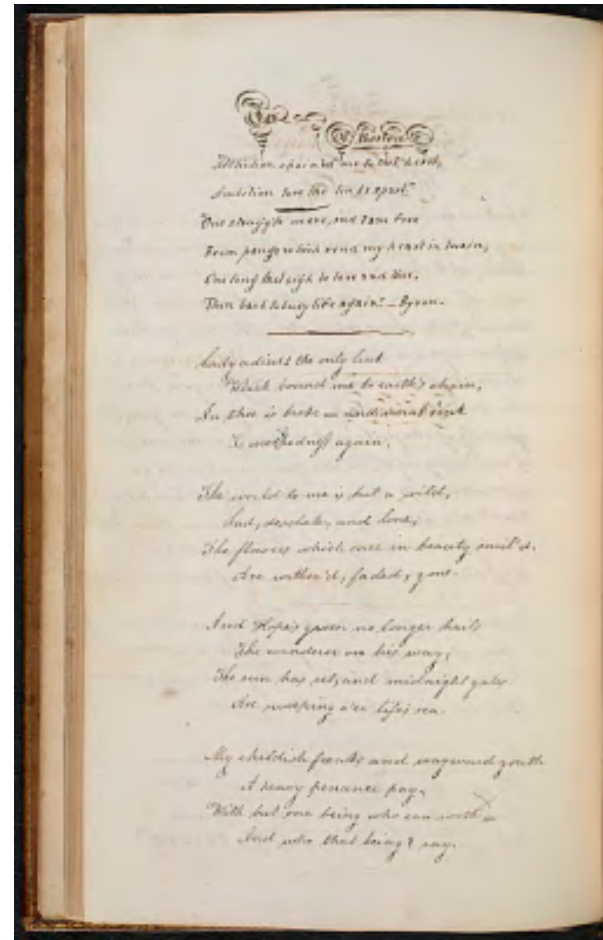 To
me to that heart,
Ambition tore the links apart."
"One struggle more, and I am free
From pangs which rend my heart in twain,
One long last sigh to love and thee,
Then back to busy life again." – Byron.
Lady adieu! the only link
Which bound me to earth's chain,
In thee is broke
again.
The world to me is but a wild,
Sad, desolate, and lone,
The flowers which once in beauty smil'd,
Are wither'd, faded, gone.
And Hope's no longer hails
The wanderer on his way,
The sun has set, and midnight gales
Are sweeping o'er life's sea.
My childish freaks and wayward youth
A heavy penance pay,
With but one being who can
And who that being? say.